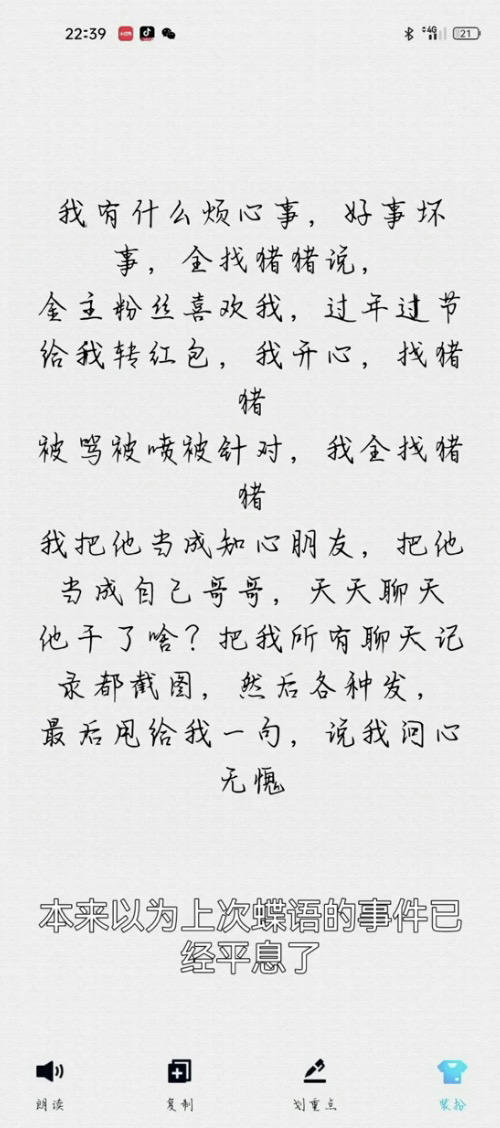 22:39
4G
21
我有什么烦心事，好事坏
事，全找猪猪说，
金主粉丝喜欢我，过年过节
给我转红包，我开心，找猪
猪
被骂被喷被针对，我全找猪
猪
我把他当成知心朋友，把他
当成自己哥哥，天天聊天
他干了啥？把我所有聊天记
录都截图，然后各种发，
最后甩给我一句，说我问心
无愧
本来以为上次蝶语的事件已
经平息了
朗读 复制 划重点 装扮